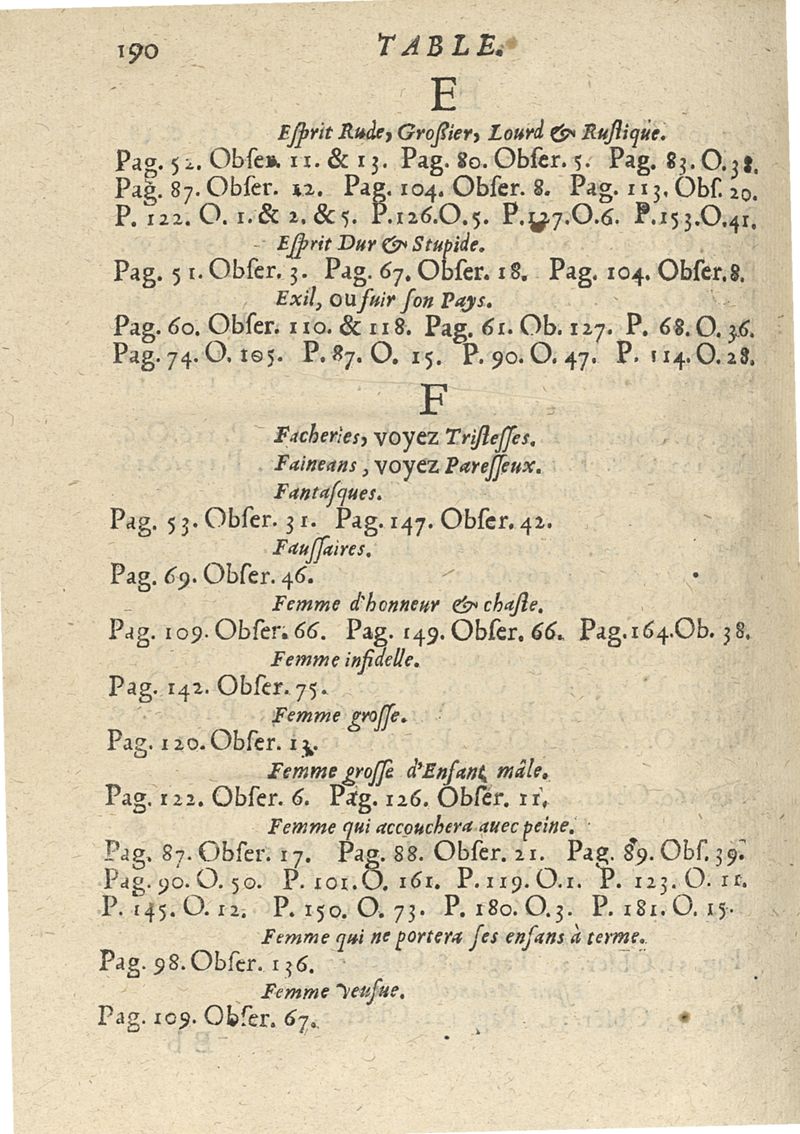 190 TABLE.
E
Esprit Rude, Großier, Lourd & Rustique.
Pag. 52. Obser. 11. & 13. Pag. 80. Obser. 5. Pag. 83. O. 38.
Pag. 87. Obser. 12. Pag. 104. Obser. 8. Pag. 113. Obs. 20.
P. 122. O. 1. & 2. & 5. P. 126. O. 5. P. 127. O. 6. P. 153. O. 41.
Esprit Dur & Stupide.
Pag. 51. Obser. 3. Pag. 67. Obser. 18. Pag. 104. Obser. 8.
Exil, ou fuir son Pays.
Pag. 60. Obser. 110. & 118. Pag. 61. Ob. 127. P. 68. O. 36.
Pag. 74. O. 105. P. 87. O. 15. P. 90. O. 47. P. 114. O. 28.
F
Facheries, voyez Tristesses.
Faineans, voyez Paresseux.
Fantasques.
Pag. 53. Obser. 31. Pag. 147. Obser. 42.
Faussaires.
Pag. 69. Obser. 46.
Femme d'honneur & chaste.
Pag. 109. Obser. 66. Pag. 149. Obser. 66. Pag. 164. Ob. 38.
Femme infidelle.
Pag. 142. Obser. 75.
Femme grosse.
Pag. 120. Obser. 13.
Femme grosse d'Enfant mâle.
Pag. 122. Obser. 6. Pag. 126. Obser. 11.
Femme qui accouchera auec peine.
Pag. 87. Obser. 17. Pag. 88. Obser. 21. Pag. 89. Obs. 39.
Pag. 90. O. 50. P. 101. O. 161. P. 119. O. 1. P. 123. O. 11.
P. 145. O. 12. P. 150. O. 73. P. 180. O. 3. P. 181. O. 15.
Femme qui ne portera ses enfans à terme.
Pag. 98. Obser. 136.
Femme Veufue.
Pag. 109. Obser. 67.